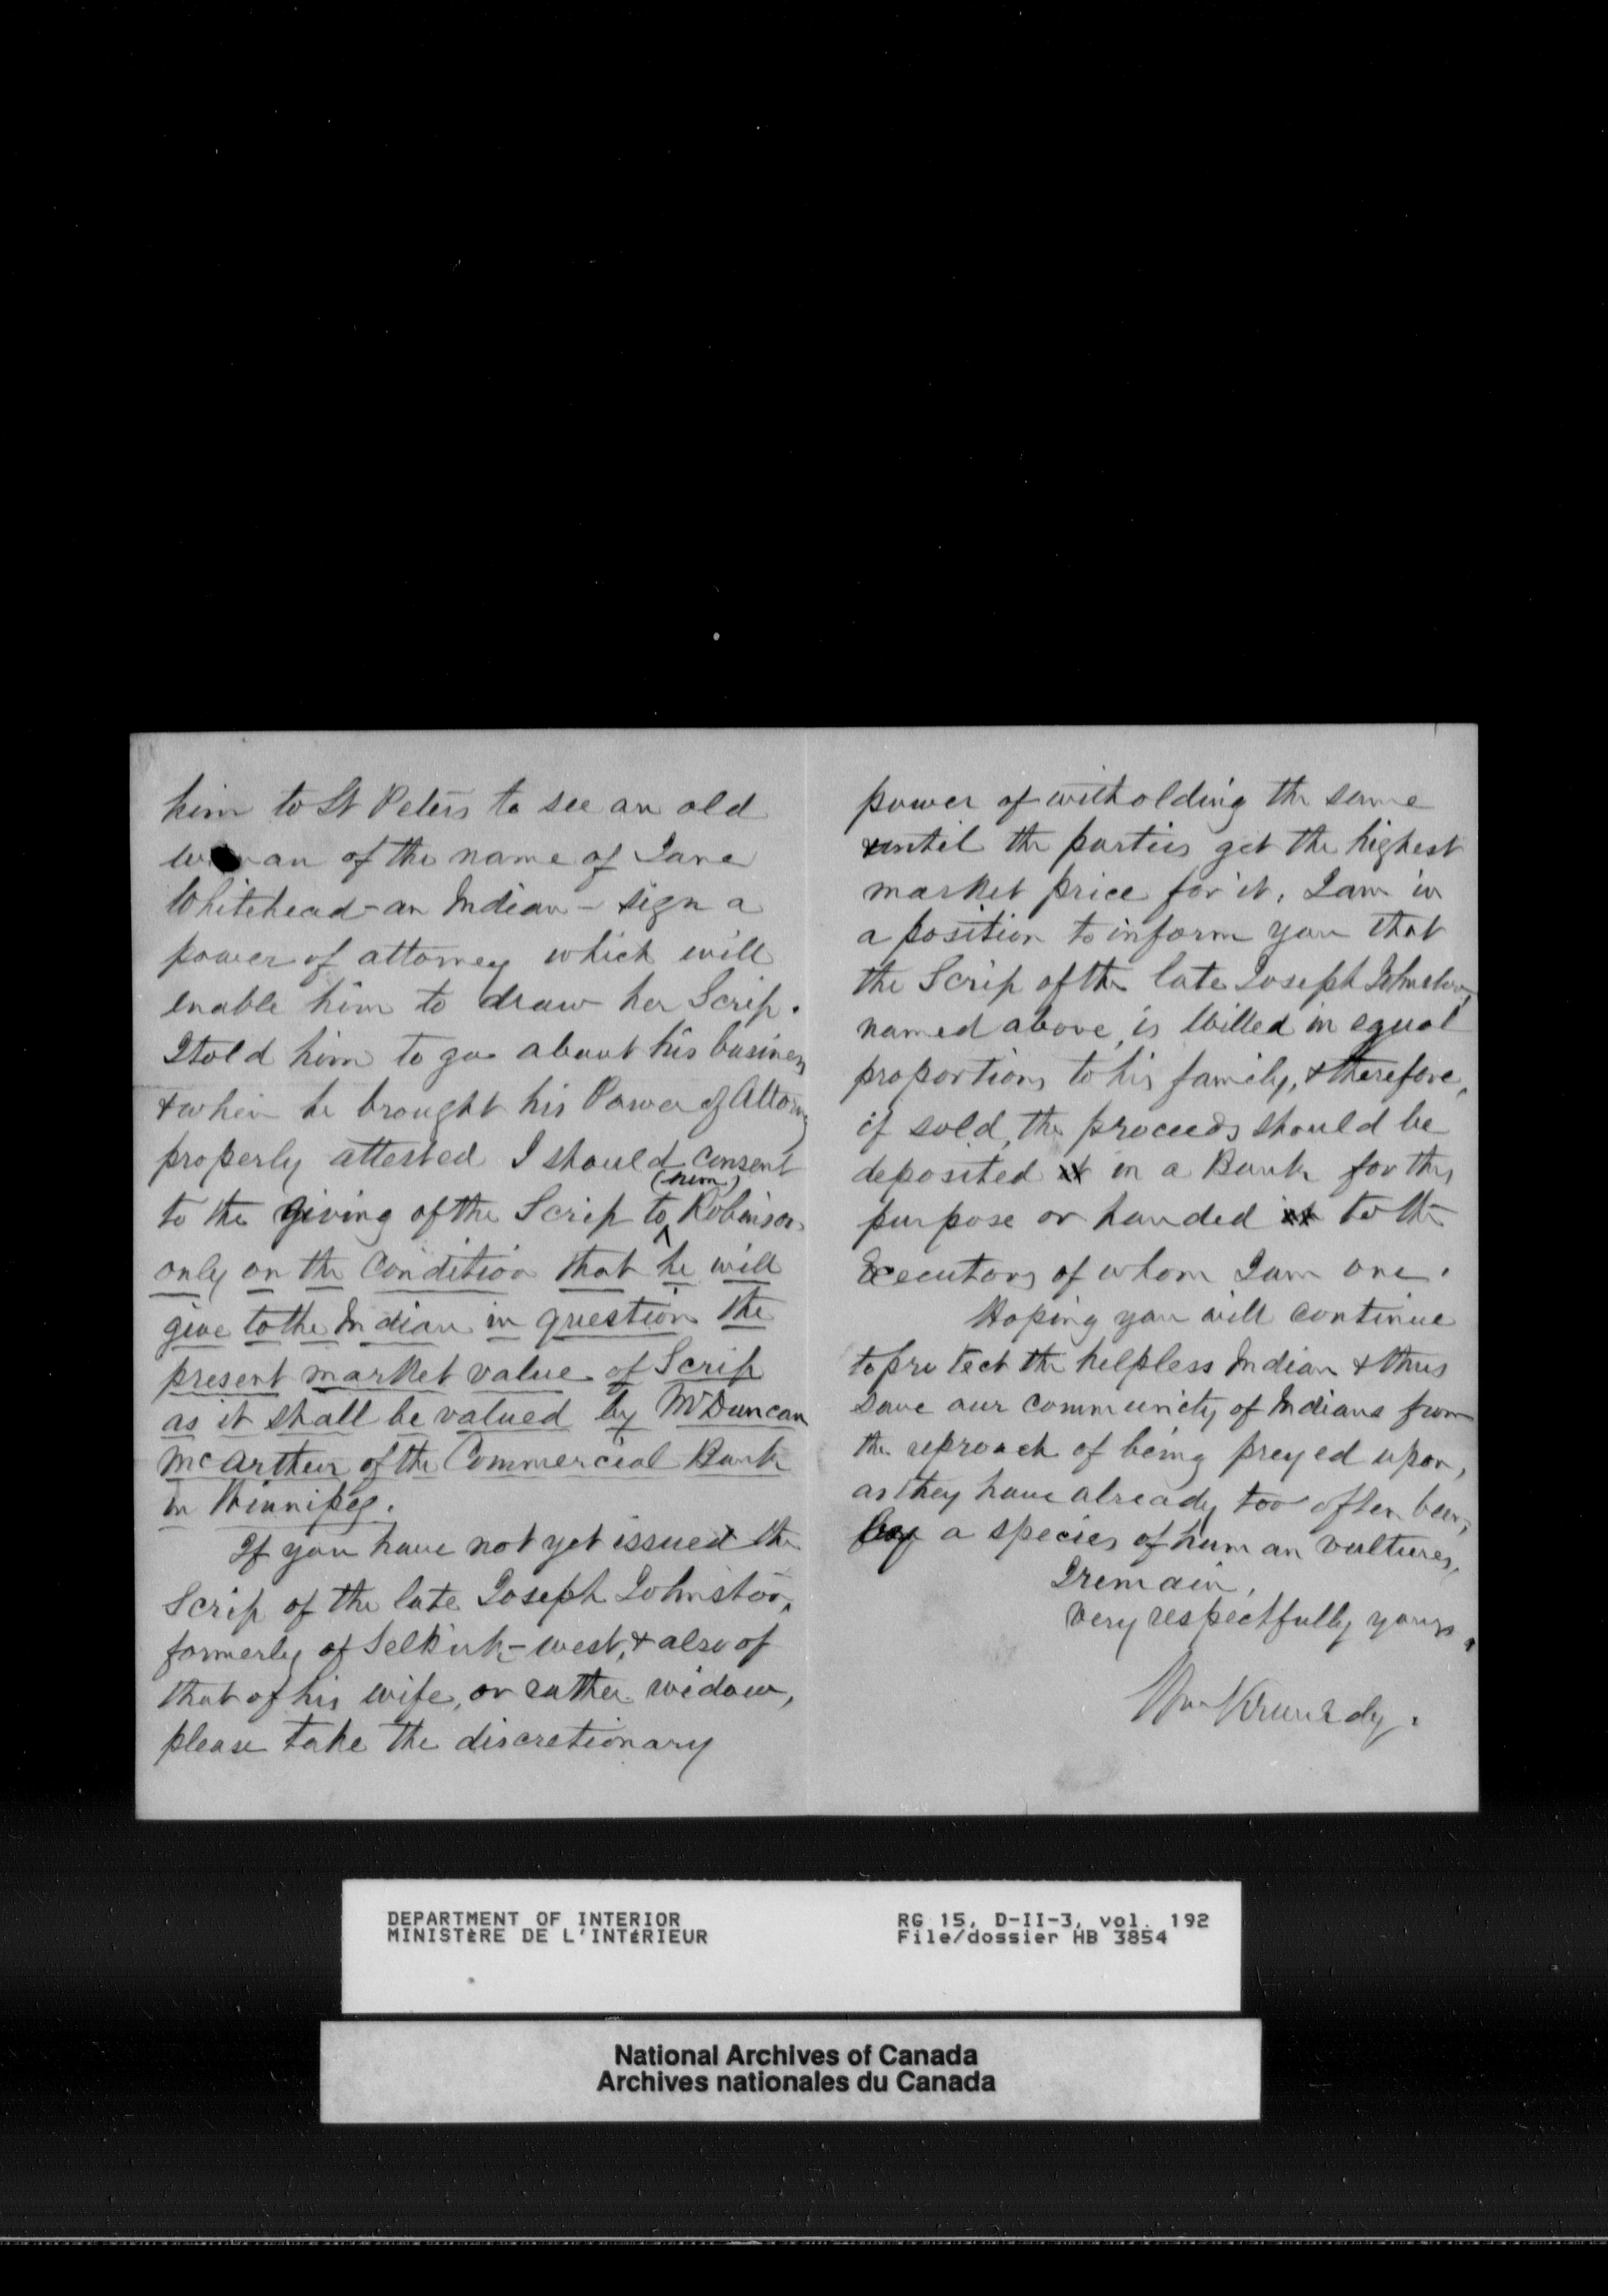 him to St Peters to see an old
woman of the name of Jane
Whitehead - an Indian - sign a
power of attorney which will
enable him to draw her Scrip.
I told him to go about his business
& when he brought his Power of Attorney
properly attested I should consent
(him)
to the giving of the Scrip to Robinson
only on the condition that he will
give to the Indian in question the
present market value of Scrip
as it shall be valued by Mr Duncan
McArthur of the Commercial Bank
in Winnipeg.
If you have not yet issued the
Scrip of the late Joseph Johnston,
formerly of Selkirk-west, & also of
that of his wife, or rather widow,
please take the discretionary
power of witholding the same
until the parties get the highest
market price for it. I am in
a position to inform you that
the Scrip of the late Joseph Johnston,
named above, is Willed in equal
proportions to his family, & therefore,
if sold, the proceeds should be
deposited in a Bank for this
purpose or handed to the
Executors of whom I am one.
Hoping you will continue
to protect the helpless Indian & thus
save our community of Indians from
the reproach of being preyed upon,
as they have already too often been,
by a species of human vultures,
I remain,
Very respectfully yours,
Wm Kennedy.
DEPARTMENT OF INTERIOR
MINISTÈRE DE L'INTÉRIEUR
RG 15, D-II-3, vol. 192
File/dossier HB 3854
National Archives of Canada
Archives nationales du Canada